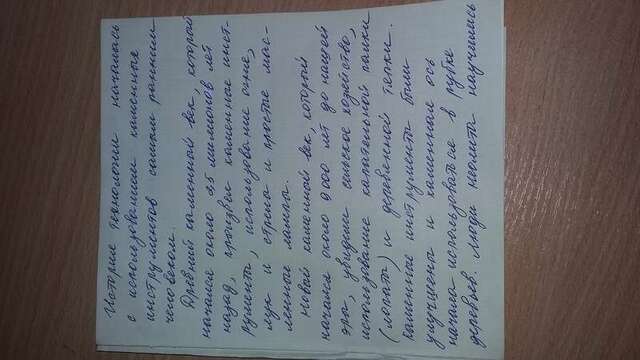 История технологии началась
с использованием каменные
инструментов самым ранним
человеком.
Древний каменный век, который
начался около 2,5 милионов лет
назад, произвел каменные инст-
рументы, использование огня,
лук и стрела и простые мас-
ленные лампы.
Новый каменной век, который
начался около 9000 лет до нашей
эры, увидели сельское хозяйство,
использование капательной палки
(лопаты) и деревянной тяпки.
Каменные инструменты были
улучшены и каменная ось
начала использоваться в рубке
деревьев. Люди неолита научились